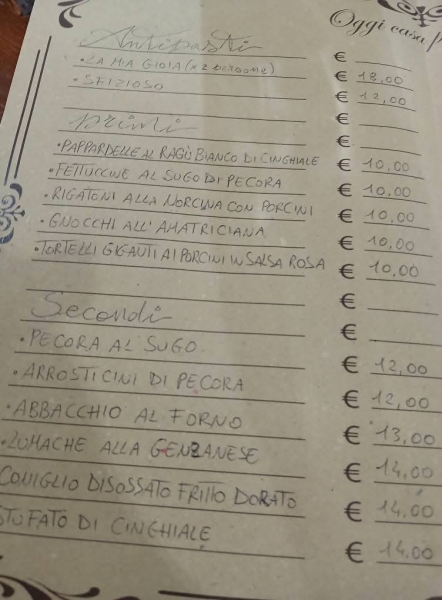 Oggi casa
Antipasti €
• LA MIA GIOIA (x 2 persone) € 18,00
• SFIZIOSO € 12,00
€
Primi €
• PAPPARDELLE AL RAGÙ BIANCO DI CINGHIALE € 10,00
• FETTUCCINE AL SUGO DI PECORA € 10,00
• RIGATONI ALLA NORCINA CON PORCINI € 10,00
• GNOCCHI ALL'AMATRICIANA € 10,00
• TORTELLI GIGANTI AI PORCINI IN SALSA ROSA € 10,00
€
Secondi €
• PECORA AL SUGO € 12,00
• ARROSTICINI DI PECORA € 12,00
• ABBACCHIO AL FORNO € 13,00
• LUMACHE ALLA GENZANESE € 14,00
CONIGLIO DISOSSATO FRITTO DORATO € 14,00
STUFATO DI CINGHIALE € 14,00